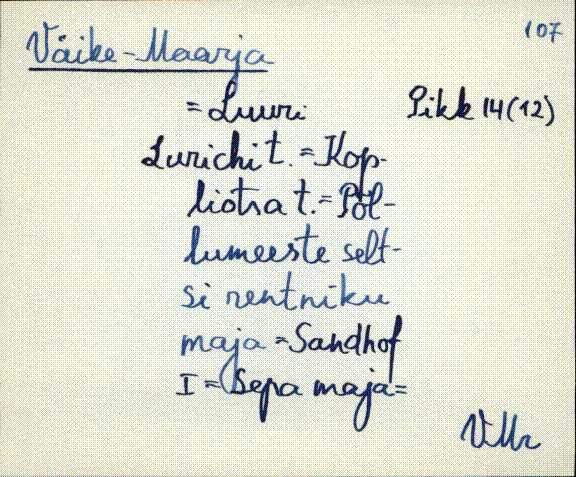 107
Väike-Maarja
= Luuri Pikk 14 (12)
Lurichi t. = Kop-
liotsa t. = Põl-
lumeeste selt-
si rentniku
maja = Sandhof
I = Sepa maja =
VMr